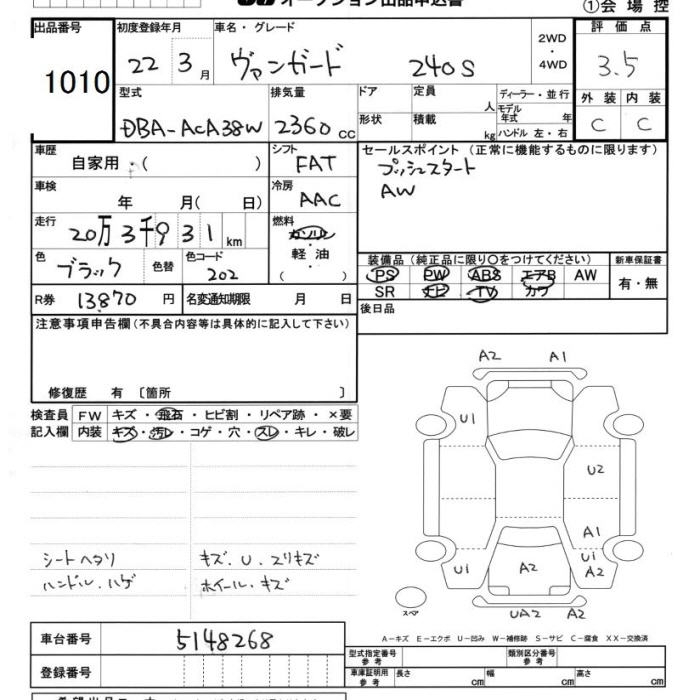 オークション出品申込書
①会場控
出品番号 1010
初度登録年月 22 3月
車名・グレード ヴァンガード 240S
2WD・4WD
評価点 3.5
型式 DBA-ACA38W
排気量 2360 cc
ドア
定員 人
ディーラー・並行
外装 内装
形状
積載 kg
モデル年式 年
ハンドル 左・右
C C
車歴 自家用・( )
シフト FAT
セールスポイント (正常に機能するものに限ります)
プッシュスタート
AW
車検 年 月( 日)
冷房 AAC
走行 20万3千931km
燃料 ガソリン
軽油
( )
色 ブラック 色替
色コード 202
装備品 (純正品に限り○をつけてください)
新車保証書
PS PW ABS エアB AW
有・無
SR ナビ TV カワ
R券 13870円
名変通知期限 月 日
後日品
注意事項申告欄(不具合内容等は具体的に記入して下さい)
修復歴 有 〔箇所 〕
検査員 FW キズ・飛石・ヒビ割・リペア跡・×要
記入欄 内装 キズ・汚レ・コゲ・穴・スレ・キレ・破レ
シートヘタリ キズ.U.スリキズ
ハンドル.ハゲ ホイール.キズ
A2 A1
U1
U2
A1
U1
A2
U1
A2
スペア
UA2 A2
A-キズ E-エクボ U-凹み W-補修跡 S-サビ C-腐食 XX-交換済
車台番号 5148268
型式指定番号 参考
類別区分番号 参考
登録番号
車庫証明用 参考 長さ cm 幅 cm 高さ cm